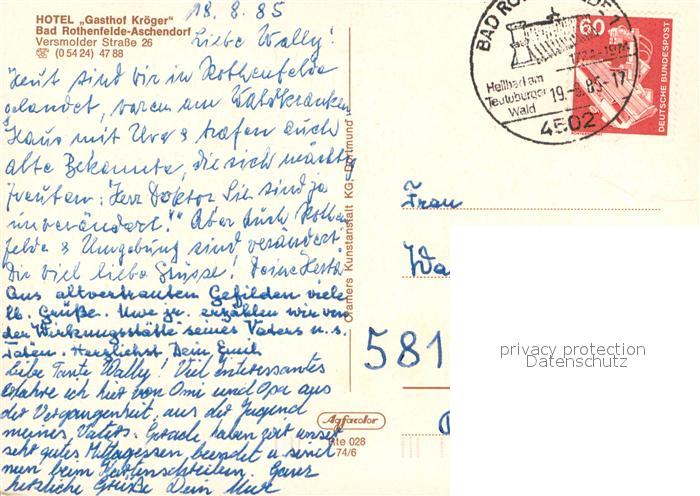 HOTEL „Gasthof Kröger"
Bad Rothenfelde-Aschendorf
Versmolder Straße 26
☎ (0 54 24) 47 88
18. 8. 85
Liebe Wally!
Heut sind wir in Rothenfelde
gelandet, waren am Waldkranken
Haus mit Uwe & trafen auch
alte Bekannte, die sich mächtig
freuten: "Herr Doktor Sie sind ja
unverändert!" Aber auch Rothen
felde & Umgebung sind verändert
Dir viel liebe Grüsse! Deine Herta
Aus altvertrauten Gefilden viele
lb. Grüße. Uwe jr. erzählen wir von
der Wirkungsstätte seines Vaters u. s.
Taten. Herzlichst Dein Emil
Liebe Tante Wally! Viel interessantes
erfahre ich hier von Omi und Opa aus
der Vergangenheit, aus der Jugend
meines Vaters. Gerade haben wir unser
sehr gutes Mittagessen beendet u. sind
nun beim Kartenschreiben. Ganz
herzliche Grüße Dein Uwe
Cramers Kunstanstalt KG, Dortmund
Agfacolor
Rte 028
74/6
BAD
Heilbad am
Teutoburger
Wald
1724-1974
19.-8.85-17
4502
60
DEUTSCHE BUNDESPOST
Frau
Wa
581
privacy protection
Datenschutz